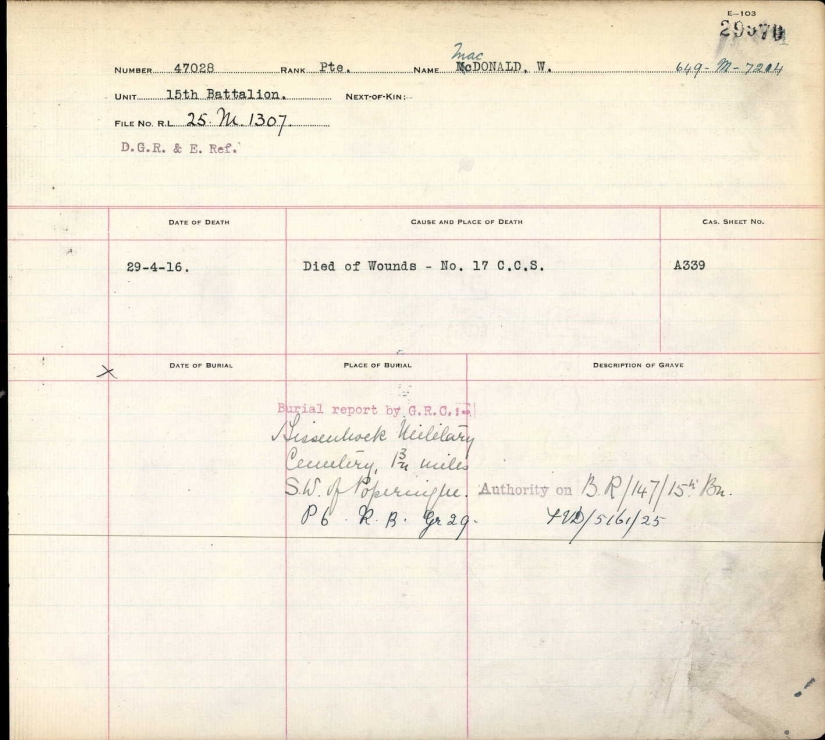 E—103
NUMBER 47028 RANK Pte. NAME Mac McDONALD, W. 649-M-7204
UNIT 15th Battalion. NEXT-OF-KIN:-
FILE NO. R.L. 25-M.1307.
D.G.R. & E. Ref.
DATE OF DEATH CAUSE AND PLACE OF DEATH CAS. SHEET NO.
29-4-16. Died of Wounds - No. 17 C.C.S. A339
X DATE OF BURIAL PLACE OF BURIAL DESCRIPTION OF GRAVE
Burial report by G.R.C.:-
Lissenhoek Military
Cemetery, 1¾ miles
S.W. of Poperinghe. Authority on B.R/147/15th Bn.
P6. R.B. Gr 29. /5161/25